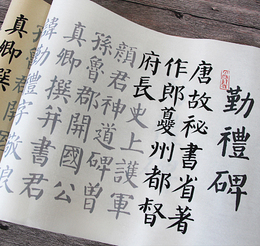 勤禮碑
唐故秘書省著
作郎夔州都督
府長
史上護軍
顏君神道碑曾
孫魯郡開國公
真卿撰并書君
諱勤禮字
真卿撰